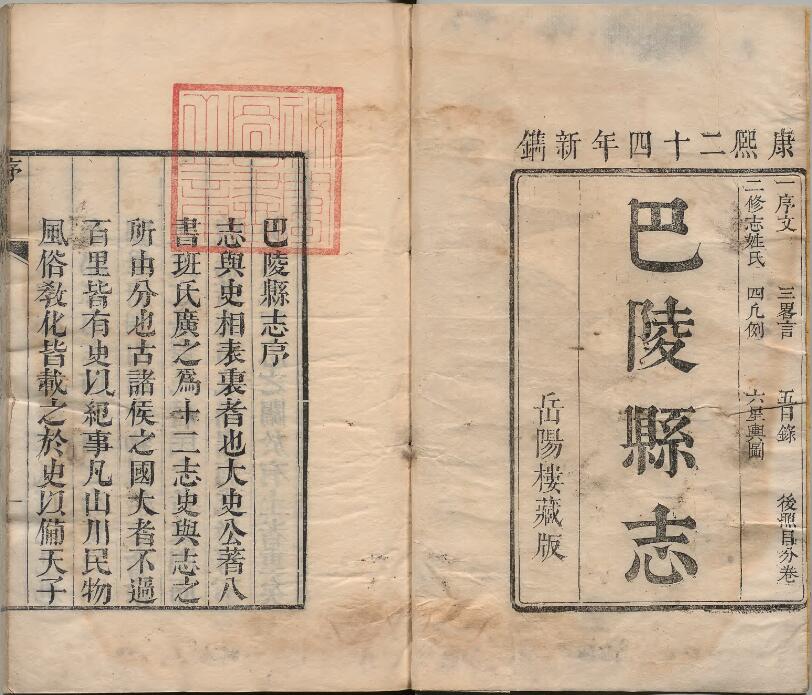 康熙二十四年新鐫
一序文 三畧言 五目錄 後照目分卷
二修志姓氏 四凡例 六星輿圖
巴陵縣志
岳陽樓藏版
巴陵縣志序
志與史相表裏者也大史公著八
書班氏廣之爲十二志史與志之
所由分也古諸侯之國大者不過
百里皆有史以紀事凡山川民物
風俗敎化皆載之於史以僃天子
序